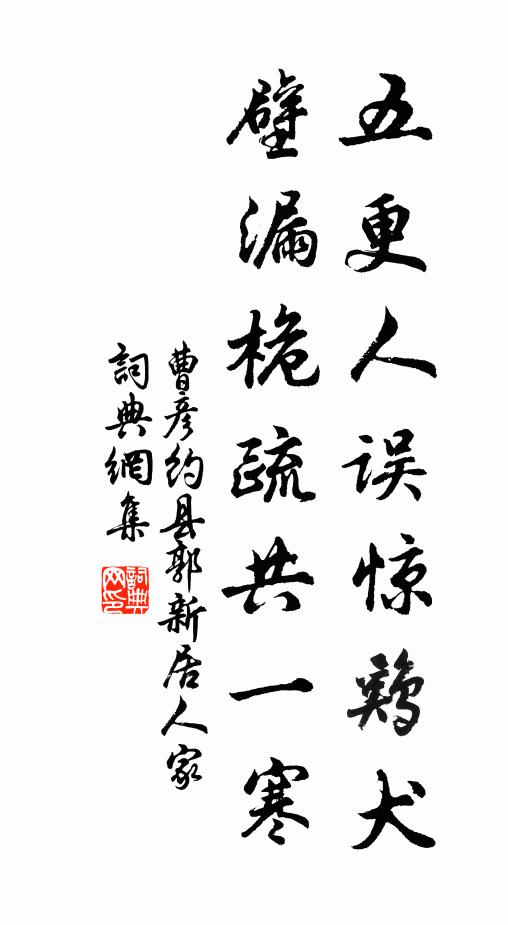 五更人误惊鸡犬
壁漏桅疏共一寒
曹彦约县郭新居人家
詞典網集
詞典网印